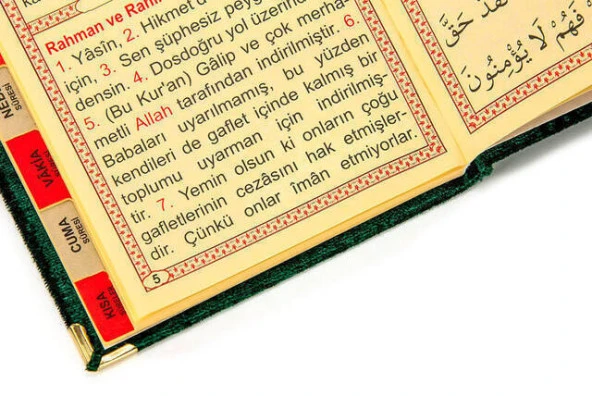 Rahman ve Rahi
1. Yâsîn, 2. Hikmet'd
için, 3. Sen şüphesiz peyg
densin. 4. Dosdoğru yol üzerind
5. (Bu Kur'an) Gâlip ve çok merha-
metli Allah tarafından indirilmiştir. 6.
Babaları uyarılmamış, bu yüzden
kendileri de gaflet içinde kalmış bir
toplumu uyarman için indirilmiş-
tir. 7. Yemin olsun ki onların çoğu
gafletlerinin cezâsını hak etmişler-
dir. Çünkü onlar îmân etmiyorlar.
5
حَقَّ
فَهُمْ لَا يُؤْمِنُونَ
SÛRESİ
VÂKIA
CUMA
SÛRESİ
KISA